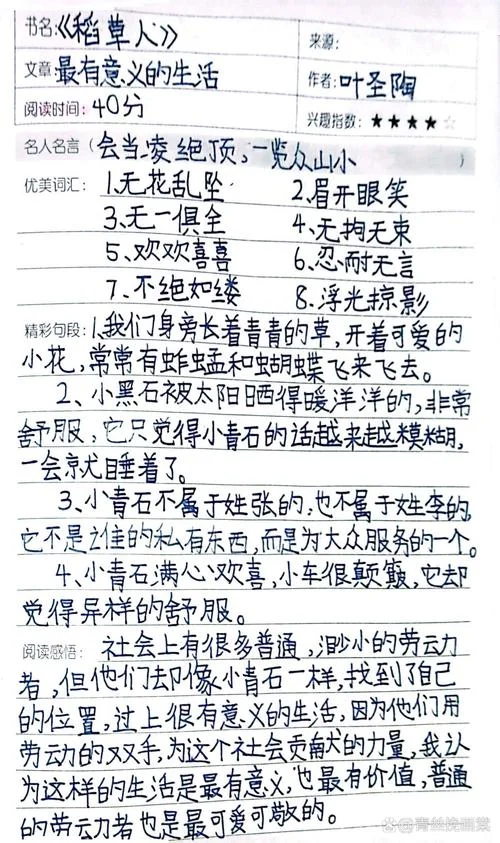 书名:《稻草人》
来源:
文章:最有意义的生活
作者:叶圣陶
阅读时间:40分
兴趣指数:★★★★☆
名人名言(会当凌绝顶,一览众山小)
优美词汇:1、无花乱坠 2、眉开眼笑
3、无一俱全 4、无拘无束
5、欢欢喜喜 6、忍耐无言
7、不绝如缕 8、浮光掠影
精彩句段:1、我们身旁长着青青的草,开着可爱的
小花,常常有蚱蜢和蝴蝶飞来飞去。
2、小黑石被太阳晒得暖洋洋的,非常
舒服,它只觉得小青石的话越来越模糊,
一会就睡着了。
3、小青石不属于姓张的,也不属于姓李的,
它不是谁的私有东西,而是为大众服务的一个。
4、小青石满心欢喜,小车很颠簸,它却
觉得异样的舒服。
阅读感悟:社会上有很多普通,渺小的劳动
者,但他们却像小青石一样,找到了自己
的位置,过上很有意义的生活,因为他们用
劳动的双手,为这个社会贡献的力量,我认
为这样的生活是最有意义,也最有价值,普通
的劳动者也是最可爱可敬的。
@青丝挽画棠